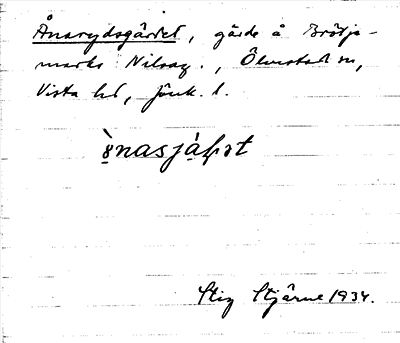 Ånarydsgärdet, gärde å Brötja-
marks Nilsag., Ölmstad sn,
Vista hd, Jönk. l.
Stig Stjärne 1934.